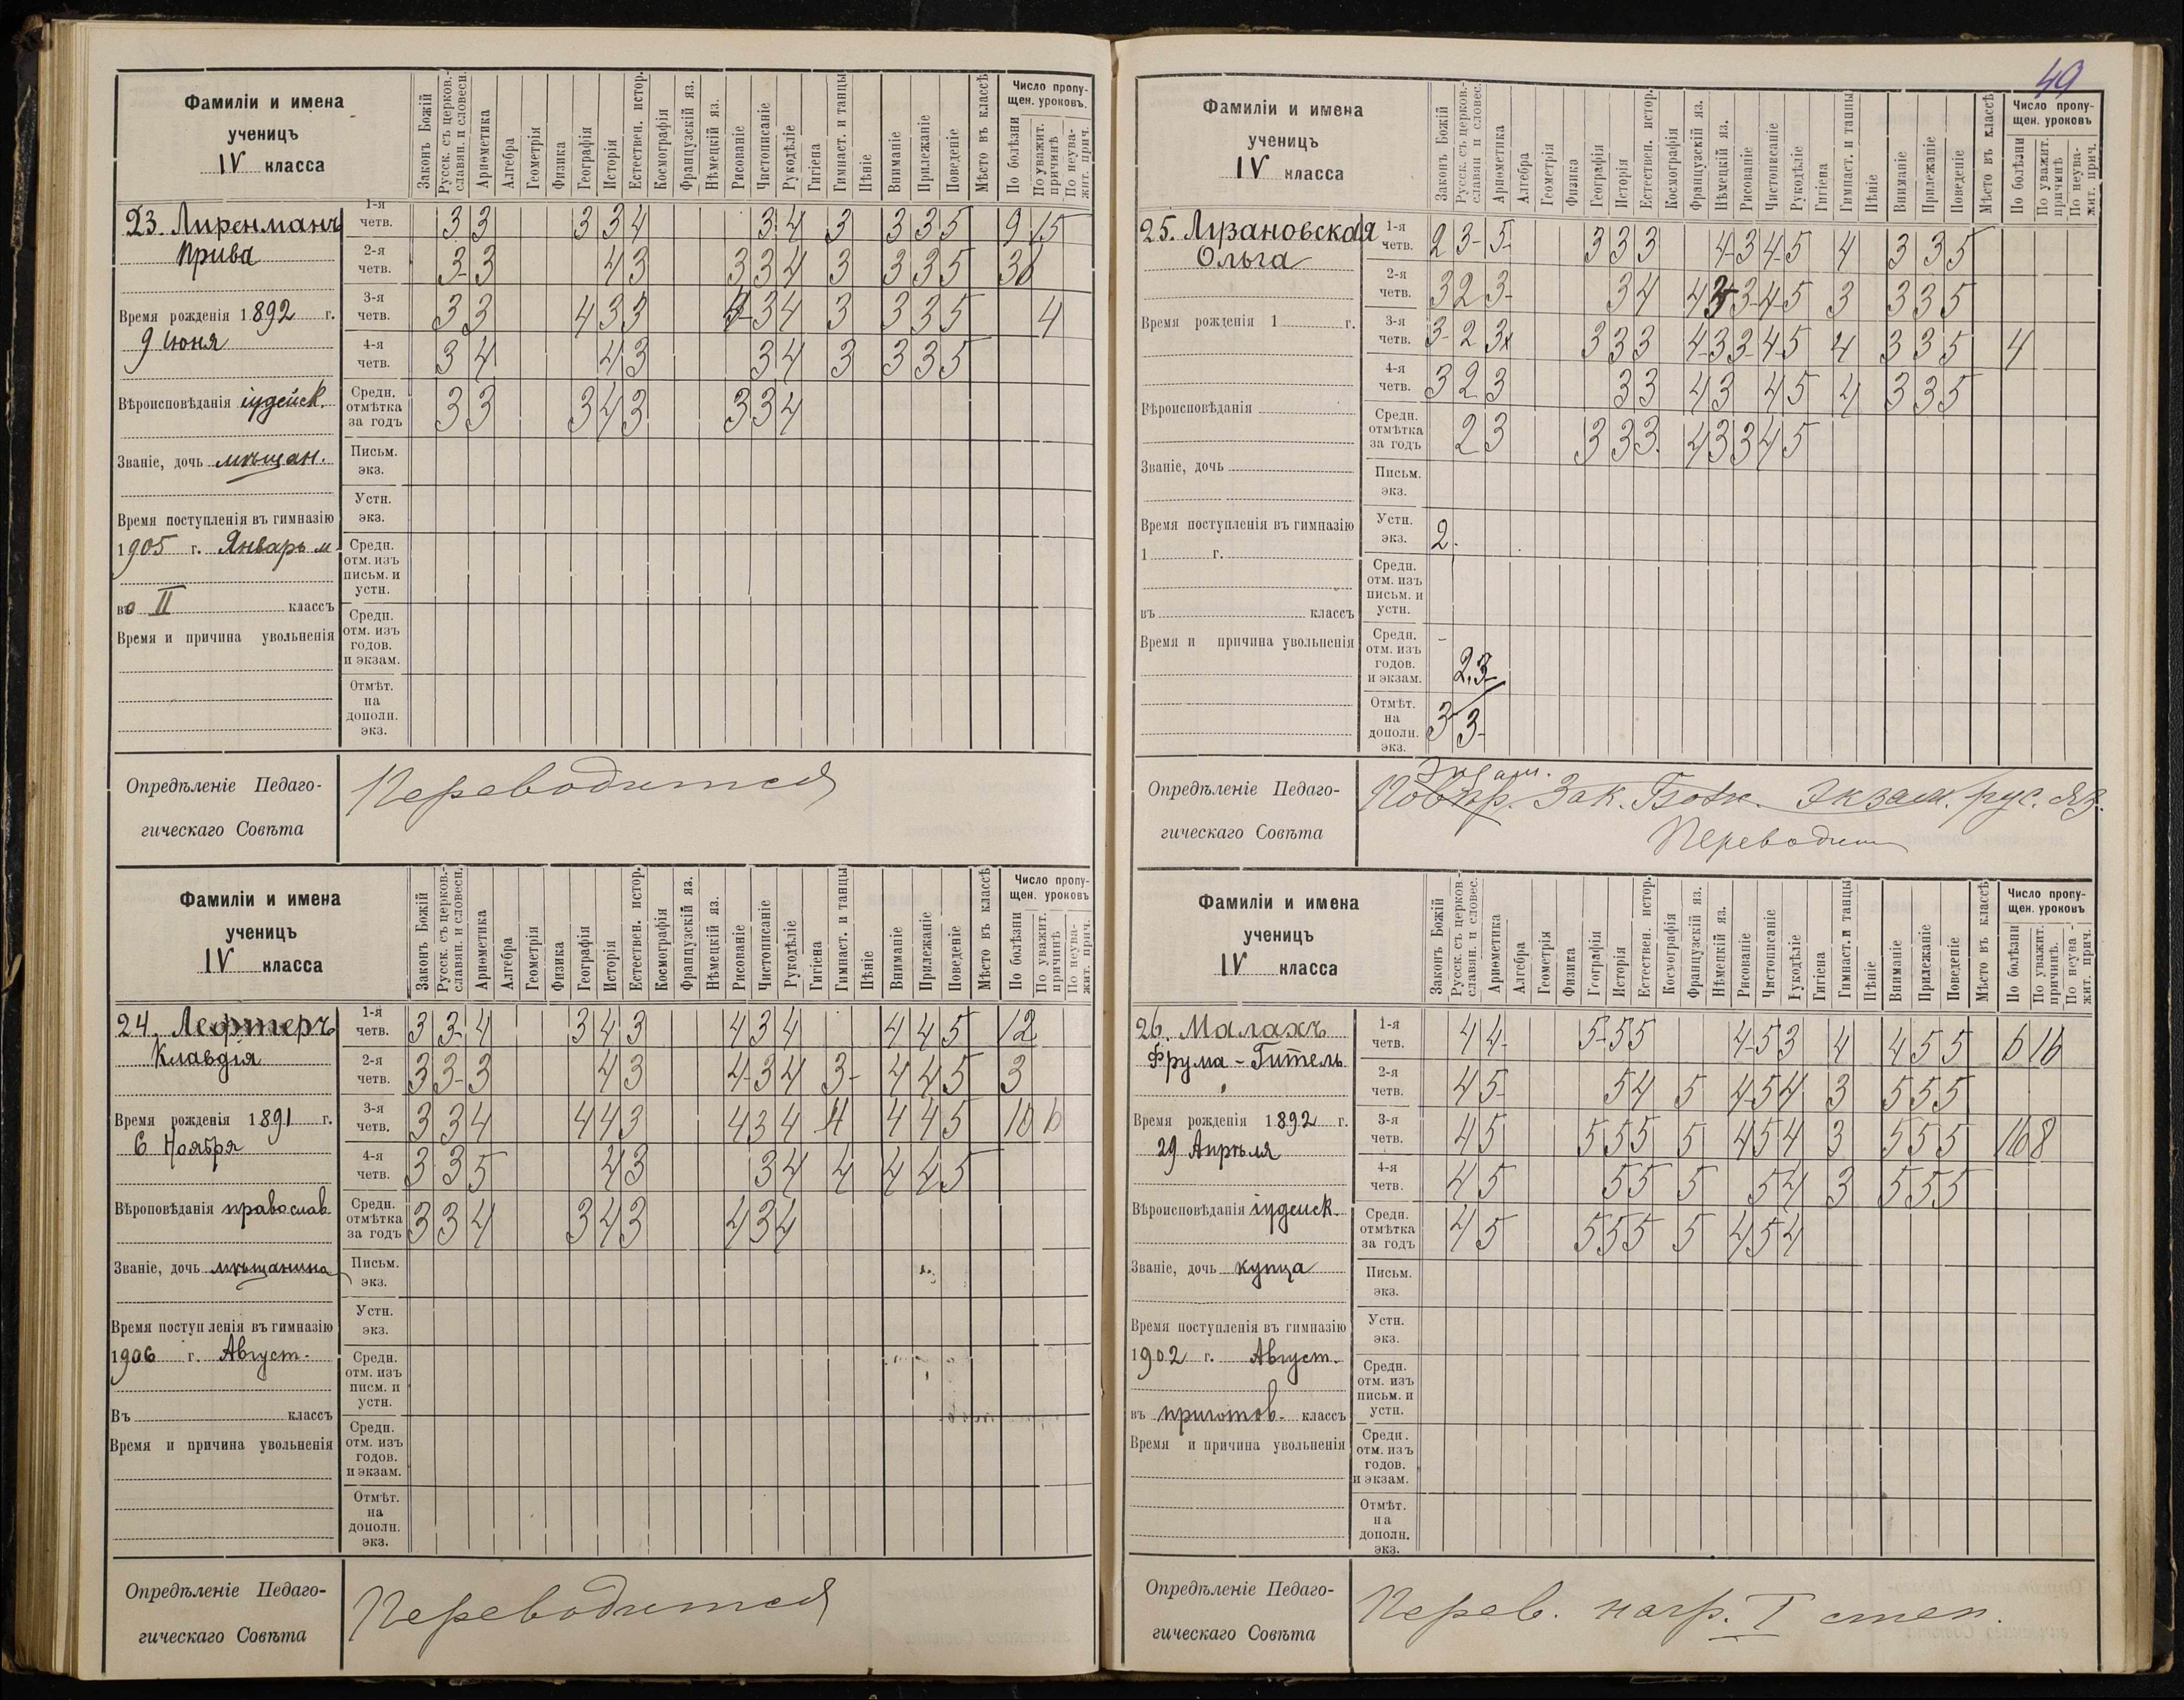 49
Фамиліи и имена
ученицъ
IV класса
Законъ Божій
Русск. съ церков.-
славян. и словесн.
Ариѳметика
Алгебра
Геометрія
Физика
Географія
Исторія
Естествен. истор.
Космографія
Французскій яз.
Нѣмецкій яз.
Рисованіе
Чистописаніе
Рукодѣліе
Гигіена
Гимнаст. и танцы
Пѣніе
Вниманіе
Прилежаніе
Поведеніе
Мѣсто въ классѣ
Число пропу-
щен. уроковъ.
По болѣзни
По уважит.
причинѣ
По неува-
жит. прич.
23. Лиренманъ
Прива
Время рожденія 1892 г.
9 Іюня
Вѣроисповѣданія іудейск.
Званіе, дочь мѣщан.
Время поступленія въ гимназію
1905 г. Январь м.
во II классъ
Время и причина увольненія
1-я четв. 3 3 3 3 4 3 4 3 3 3 5 9 15
2-я четв. 3 3 4 3 3 3 4 3 3 3 5 36
3-я четв. 3 3 4 3 3 3 4 3 3 3 5 4
4-я четв. 3 4 4 3 3 4 3 3 3 5
Средн. отмѣтка за годъ 3 3 3 4 3 3 3 4
Письм. экз.
Устн. экз.
Средн. отм. изъ письм. и устн.
Средн. отм. изъ годов. и экзам.
Отмѣт. на дополн. экз.
Опредѣленіе Педаго-
гическаго Совѣта
Переводится
Фамиліи и имена
ученицъ
IV класса
Законъ Божій
Русск. съ церков.-
славян. и словесн.
Ариѳметика
Алгебра
Геометрія
Физика
Географія
Исторія
Естествен. истор.
Космографія
Французскій яз.
Нѣмецкій яз.
Рисованіе
Чистописаніе
Рукодѣліе
Гигіена
Гимнаст. и танцы
Пѣніе
Вниманіе
Прилежаніе
Поведеніе
Мѣсто въ классѣ
Число пропу-
щен. уроковъ
По болѣзни
По уважит.
причинѣ
По неува-
жит. прич.
24. Лефтеръ
Клавдія
Время рожденія 1891 г.
6 Ноября
Вѣроповѣданія православ.
Званіе, дочь мѣщанина
Время поступленія въ гимназію
1906 г. Август.
Въ классъ
Время и причина увольненія
1-я четв. 3 3- 4 3 4 3 4 3 4 4 4 5 12
2-я четв. 3 3- 3 4 3 4 3 4 3- 4 4 5 3
3-я четв. 3 3 4 4 4 3 4 3 4 4 4 4 5 10 6
4-я четв. 3 3 5 4 3 3 4 4 4 4 5
Средн. отмѣтка за годъ 3 3 4 3 4 3 4 3 4
Письм. экз.
Устн. экз.
Средн. отм. изъ писм. и устн.
Средн. отм. изъ годов. и экзам.
Отмѣт. на дополн. экз.
Опредѣленіе Педаго-
гическаго Совѣта
Переводится
Фамиліи и имена
ученицъ
IV класса
Законъ Божій
Русск. съ церков.-
славян и словес.
Ариѳметика
Алгебра
Геометрія
Физика
Географія
Исторія
Естествен. истор.
Космографія
Французскій яз.
Нѣмецкій яз.
Рисованіе
Чистописаніе
Рукодѣліе
Гигіена
Гимнаст. и танцы
Пѣніе
Вниманіе
Прилежаніе
Поведеніе
Мѣсто въ классѣ
Число пропу-
щен. уроковъ
По болѣзни
По уважит.
причинѣ
По неува-
жит. прич.
25. Лузановская
Ольга
Время рожденія 1 г.
Вѣроисповѣданія
Званіе, дочь
Время поступленія въ гимназію
1 г.
въ классъ
Время и причина увольненія
1-я четв. 2 3- 5- 3 3 3 4- 3 4- 5 4 3 3 5
2-я четв. 3 2 3- 3 4 4 3 3- 4 5 3 3 3 5
3-я четв. 3- 2 3 3 3 3 4- 3 3 4 5 4 3 3 5 4
4-я четв. 3 2 3 3 3 4 3 4 5 4 3 3 5
Средн. отмѣтка за годъ 2 3 3 3 3. 4 3 3 4 5
Письм. экз.
Устн. экз. 2.
Средн. отм. изъ письм. и устн.
Средн. отм. изъ годов. и экзам. 2. 3-
Отмѣт. на дополн. экз. 3- 3-
Опредѣленіе Педаго-
гическаго Совѣта
Экзам.
Повтор. Зак. Божж. Экзам. рус. яз.
Переводит
Фамиліи и имена
ученицъ
IV класса
Законъ Божій
Русск. съ церков.-
славян. и словес.
Ариѳметика
Алгебра
Геометрія
Физика
Географія
Исторія
Естествен. истор.
Космографія
Французскій яз.
Нѣмецкій яз.
Рисованіе
Чистописаніе
Рукодѣліе
Гигіена
Гимнаст. и танцы
Пѣніе
Вниманіе
Прилежаніе
Поведеніе
Мѣсто въ классѣ
Число пропу-
щен. уроковъ
По болѣзни
По уважит.
причинѣ.
По неува-
жит. прич.
26. Малахъ
Фрума-Гитель
Время рожденія 1892 г.
29 Апрѣля
Вѣроисповѣданія іудейск.
Званіе, дочь купца
Время поступленія въ гимназію
1902 г. Август.
въ приготов. классъ
Время и причина увольненія
1-я четв. 4 4- 5- 5 5 4- 5 3 4 4 5 5 6 16
2-я четв. 4 5- 5 4 5 4- 5 4 3 5 5 5
3-я четв. 4 5 5 5 5 5 4 5 4 3 5 5 5 16 8
4-я четв. 4 5 5 5 5 5 4 3 5 5 5
Средн. отмѣтка за годъ 4 5 5 5 5 5 4 5 4
Письм. экз.
Устн. экз.
Средн. отм. изъ письм. и устн.
Средн. отм. изъ годов. и экзам.
Отмѣт. на дополн. экз.
Опредѣленіе Педаго-
гическаго Совѣта
Перев. нагр. I степ.